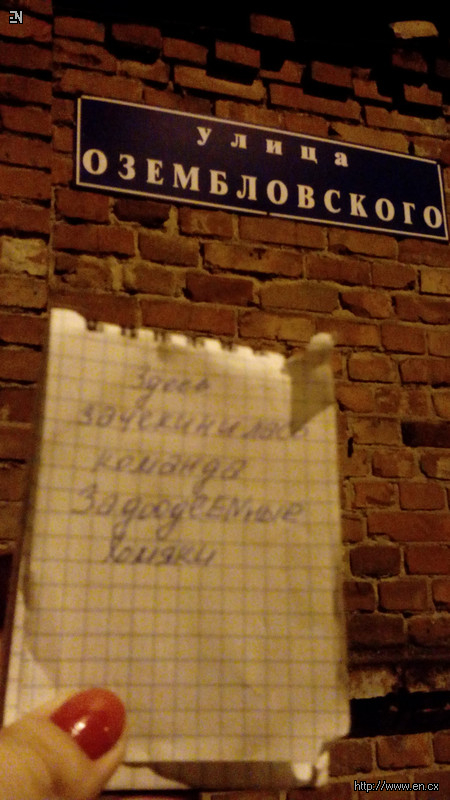 EN
улица
ОЗЕМБЛОВСКОГО
Здесь
зачекинилась
команда
ЗадродСЕNные
хомяки
http://www.en.cx